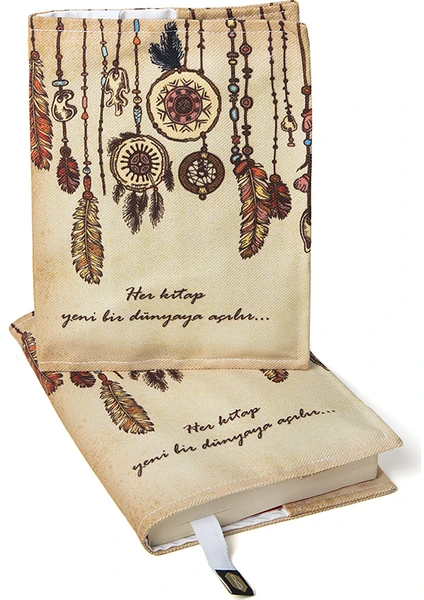 Her kitap
yeni bir dünyaya açılır...
Her kitap
yeni bir dünyaya açılır...